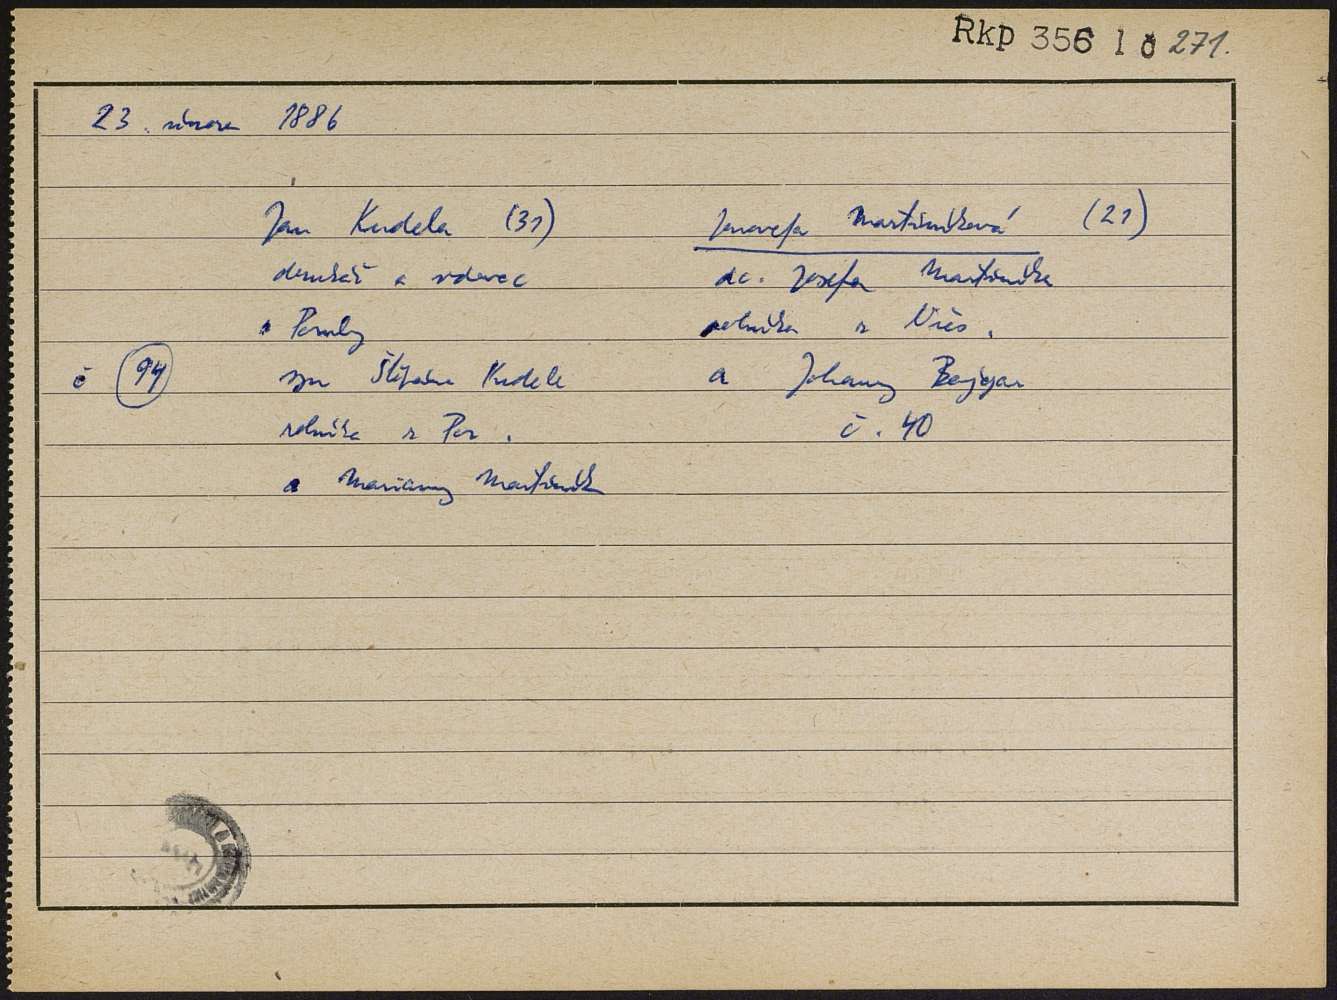 Rkp 356 l č 271.
23. února 1886
Jan Kudela (31)
domkař a vdovec
z Poruby
č 94
syn Štěpána Kudele
rolníka z Por.
a Marianny Martiník
Jenovefa Martiníková (21)
dc. Josefa Martiníka
rolníka z
a Johanny
č. 40